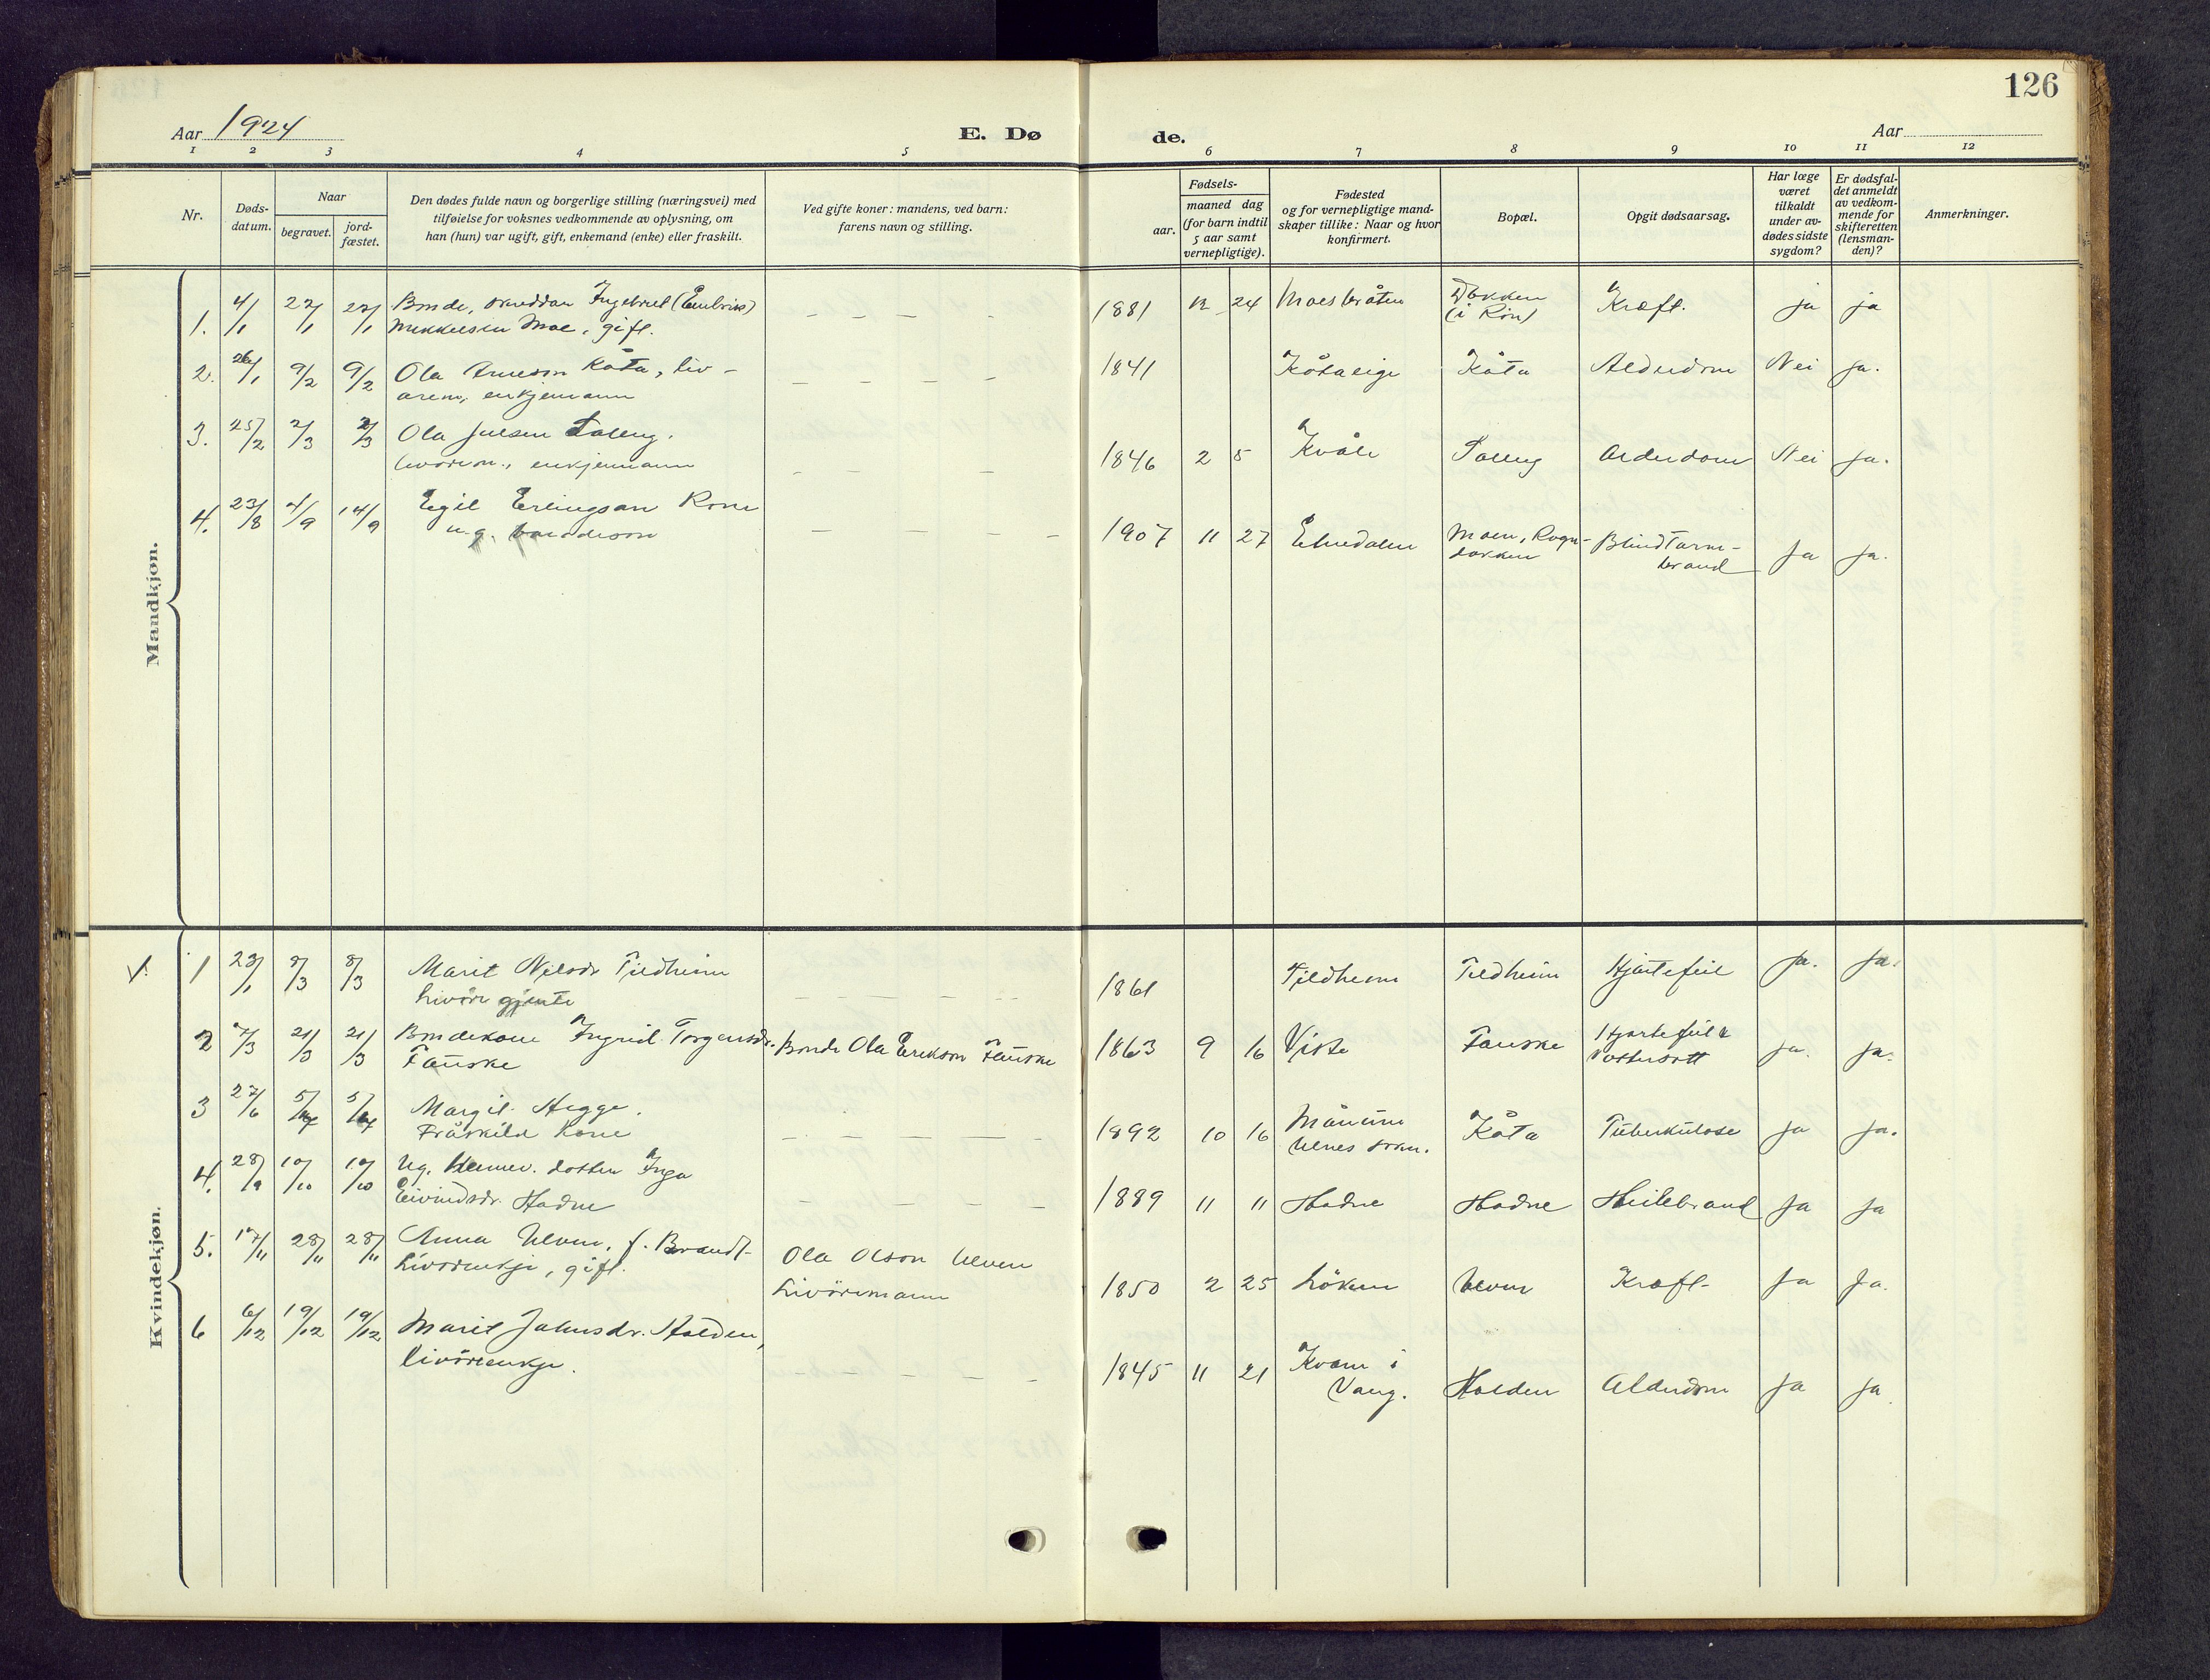 126
Aar 1924
E. Dø
de.
Aar
1 2 3 4 5 6 7 8 9 10 11 12
Nr.
Døds-
datum.
Naar
begravet.
jord-
fæstet.
Den dødes fulde navn og borgerlige stilling (næringsvei) med
tilføielse for voksnes vedkommende av oplysning, om
han (hun) var ugift, gift, enkemand (enke) eller fraskilt.
Ved gifte koner: mandens, ved barn:
farens navn og stilling.
Fødsels-
aar.
maaned dag
(for barn indtil
5 aar samt
vernepligtige).
Fødested
og for vernepligtige mand-
skaper tillike: Naar og hvor
konfirmert.
Bopæl.
Opgit dødsaarsag.
Har læge
været
tilkaldt
under av-
dødes sidste
sygdom?
Er dødsfal-
det anmeldt
av vedkom-
mende for
skifteretten
(lensman-
den)?
Anmerkninger.
Mandkjøn.
1. 4/1 22/1 22/1 Bonde, Ingebret (Embrik) 1881 12 24 Moesbråten Døkken Kræft. ja ja
Mikkelsen Moe, gift. (i Røn)
2. 26/1 9/2 9/2 Ola Arneson Kåta, liv- 1841 Kåtaeige Kåta Alderdom Nei ja.
enkjemann
3. 25/2 2/3 2/3 Ola Julsen 1846 2 5 Kvåle Alderdom Nei ja.
enkjemann
4. 23/8 4/9 14/9 Egil Erlingsan Rone 1907 11 27 Elnedalen Moen, Rogn- Blindtarm- ja ja.
u.g. dokken brand
Kvindekjøn.
1 23/1 8/3 8/3 Marit Nilsdr Tildheim 1861 Tildheim Tildheim Hjartefeil ja. ja.
Livöre gjente
2 7/3 21/3 21/3 Bondekone Ingrid Torgersdr. Bonde Ola Erikson Fauske 1863 9 16 Viste Fauske Hjartefeil & ja. ja.
Fauske Vattersott
3 27/6 5/7 5/7 Margit Hegge. 1892 10 16 Månum Kåta Tuberkulose ja ja.
Fråskild kone Ulnes
4. 28/9 10/10 10/10 Ug. dotter Inga 1889 11 11 Hadne Hadne ja ja
Eivindsdr. Hadne
5. 17/11 28/11 28/11 Anna Ulven, f. Brandt Ola Olson Ulven 1850 2 25 Løken Ulven Kræft ja ja.
Livörenkje, gift. Livöremann
6 6/12 19/12 19/12 Marit Johnsdr. Halden, 1845 11 21 Kvam i Halden Alderdom ja ja
livörenkje. Vang.